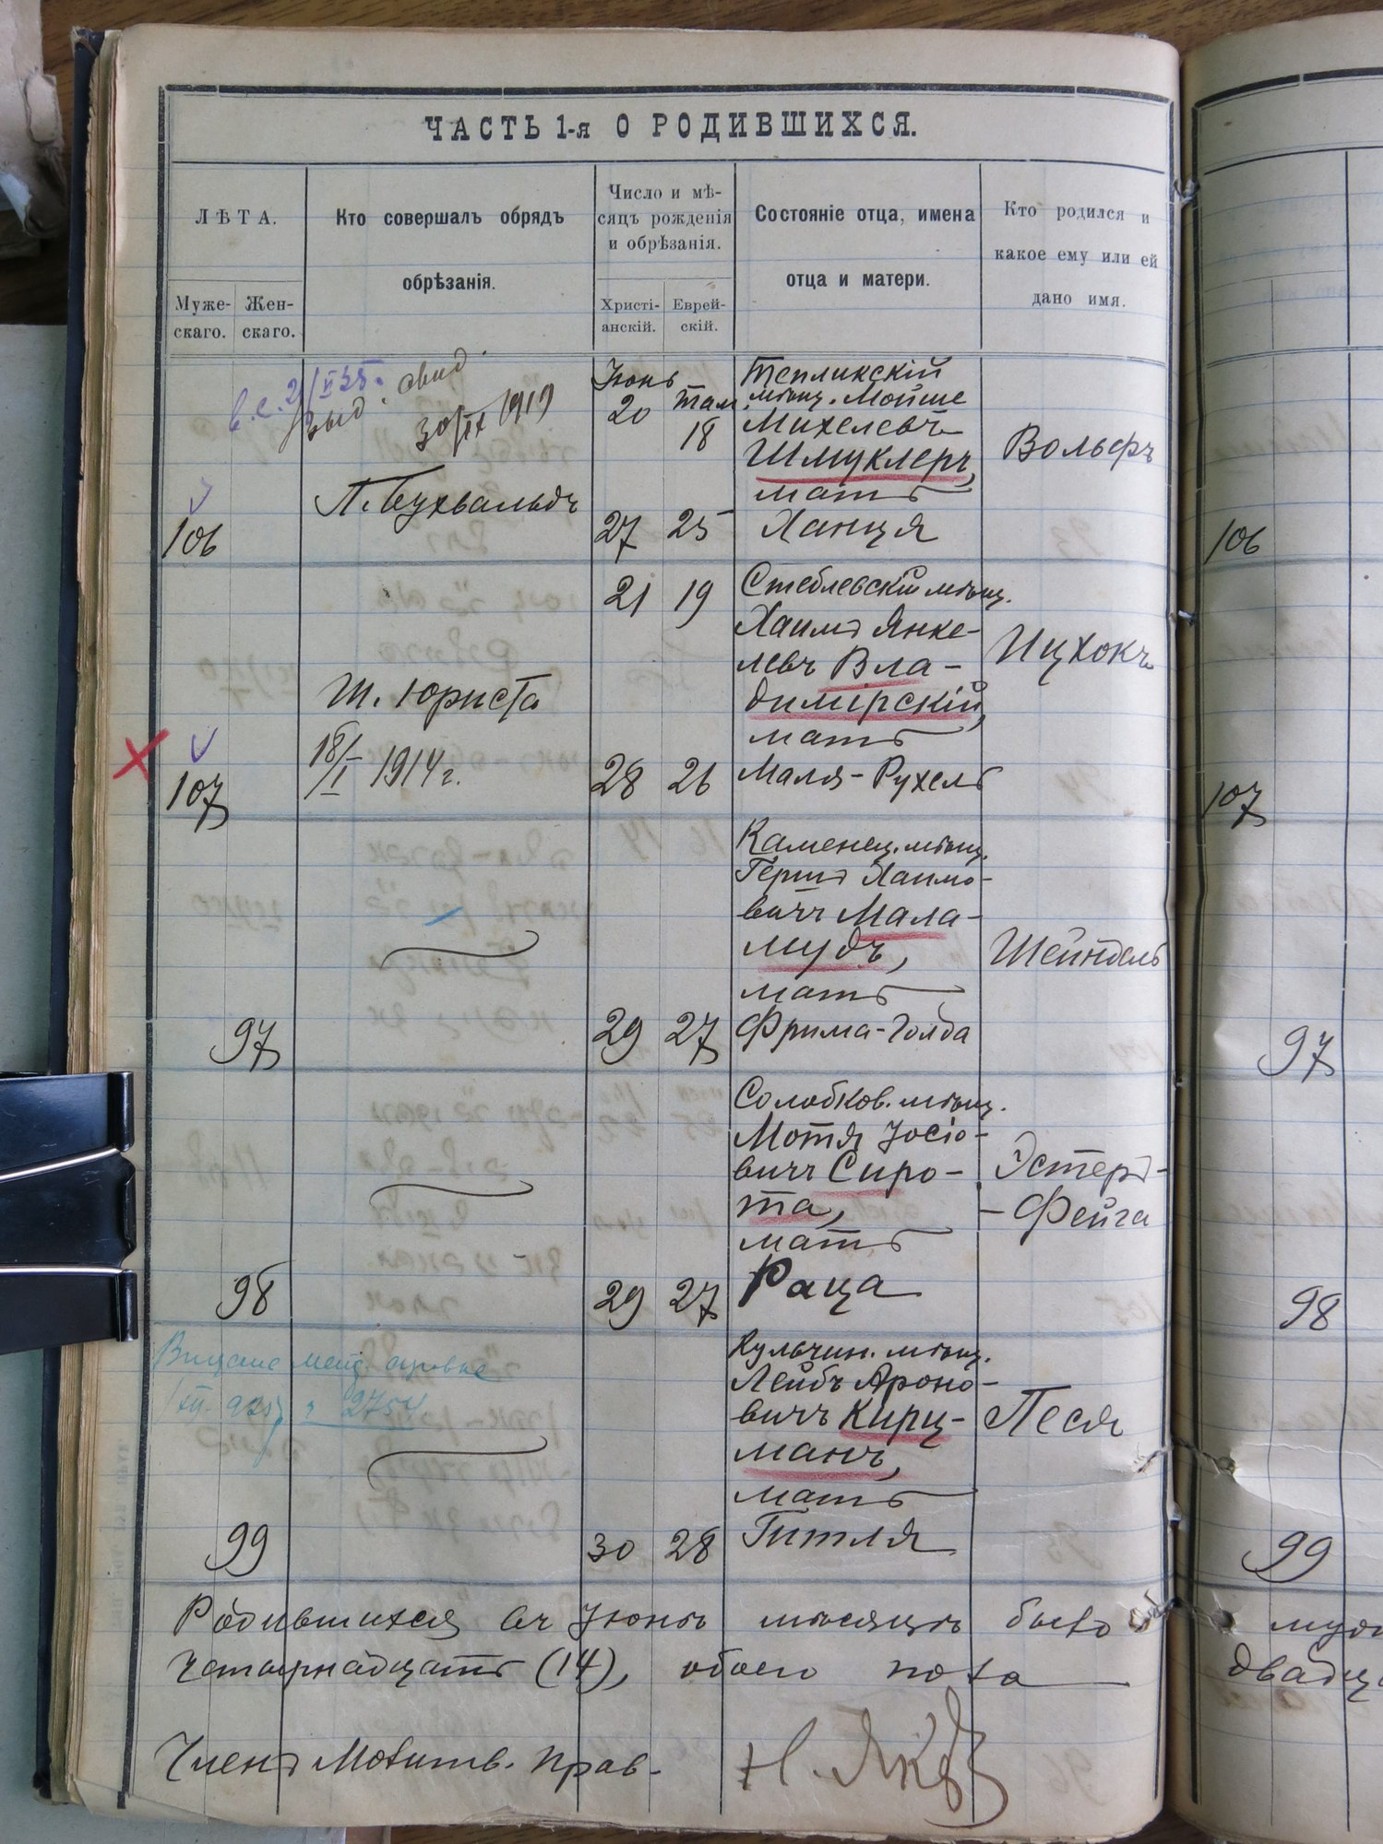 ЧАСТЬ 1-я О РОДИВШИХСЯ.
ЛѢТА.
Муже-
скаго.
Жен-
скаго.
Кто совершалъ обрядъ
обрѣзанія.
Число и мѣ-
сяцъ рожденія
и обрѣзанія.
Христі-
анскій.
Еврей-
скій.
Состояніе отца, имена
отца и матери.
Кто родился и
какое ему или ей
дано имя.
выд. свид.
30/IX 1919
106
Л. Бухвальдъ
Іюнь
20
Там.
18
27 25
Тепликскій
мѣщ. Мойше
Михелевъ
Шмуклеръ,
мать
Ханця
Вольфъ
106
107
Ш. Юриста
18/I 1914 г.
21 19
28 26
Стеблевскій мѣщ.
Хаимъ Янке-
левъ Вла-
димірскій,
мать
Маля-Рухель
Ицхокъ
107
97
29 27
Каменец. мѣщ.
Гершъ Хаимо-
вичъ Мала-
мудъ,
мать
Фрима-Голда
Шейндель
97
98
29 27
Солобков. мѣщ.
Мотя Іосіо-
вичъ Сиро-
та,
мать
Раца
Эстеръ-
-Фейга
98
2754
99
30 28
Кульчин. мѣщ.
Лейбъ Ароно-
вичъ Кирц-
манъ,
мать
Гитля
Песя
99
Родившихся въ Іюнѣ мѣсяцѣ было
четырнадцать (14), обоего пола
Членъ Молитв. Прав.